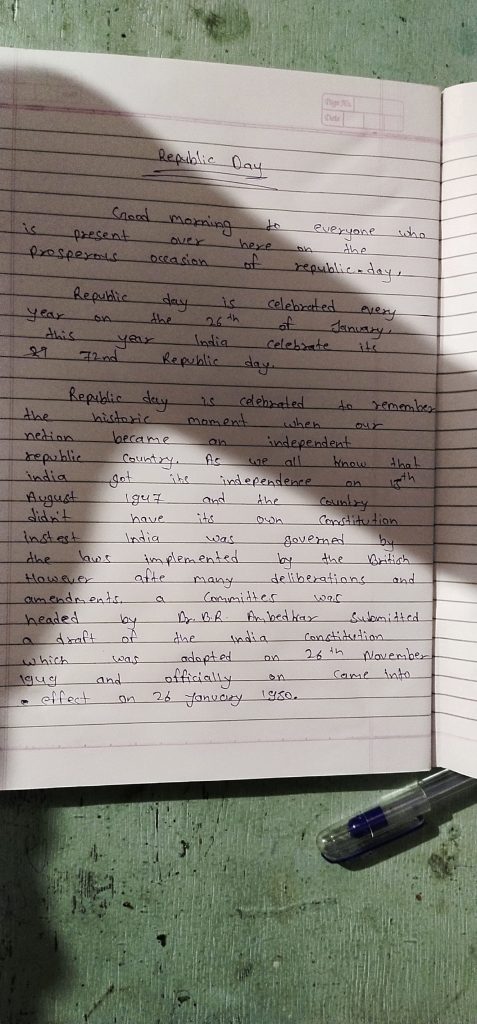 Page No.
Date
Republic Day
Good morning to everyone who
is present over here on the
prosperous occasion of republic-day.
Republic day is celebrated every
year on the 26th of January.
this year India celebrate its
72nd Republic day.
Republic day is celebrated to remember
the historic moment when our
netion became an independent
republic country. As we all know that
india got its independence on 15th
August 1947 and the country
didn't have its own Constitution
instest India was governed by
the laws implemented by the British
However afte many deliberations and
amendments, a Committes was
headed by Dr. B.R. Ambedkar Submitted
a draft of the india constitution
which was adopted on 26th November
1949 and officially on came into
effect on 26 January 1950.